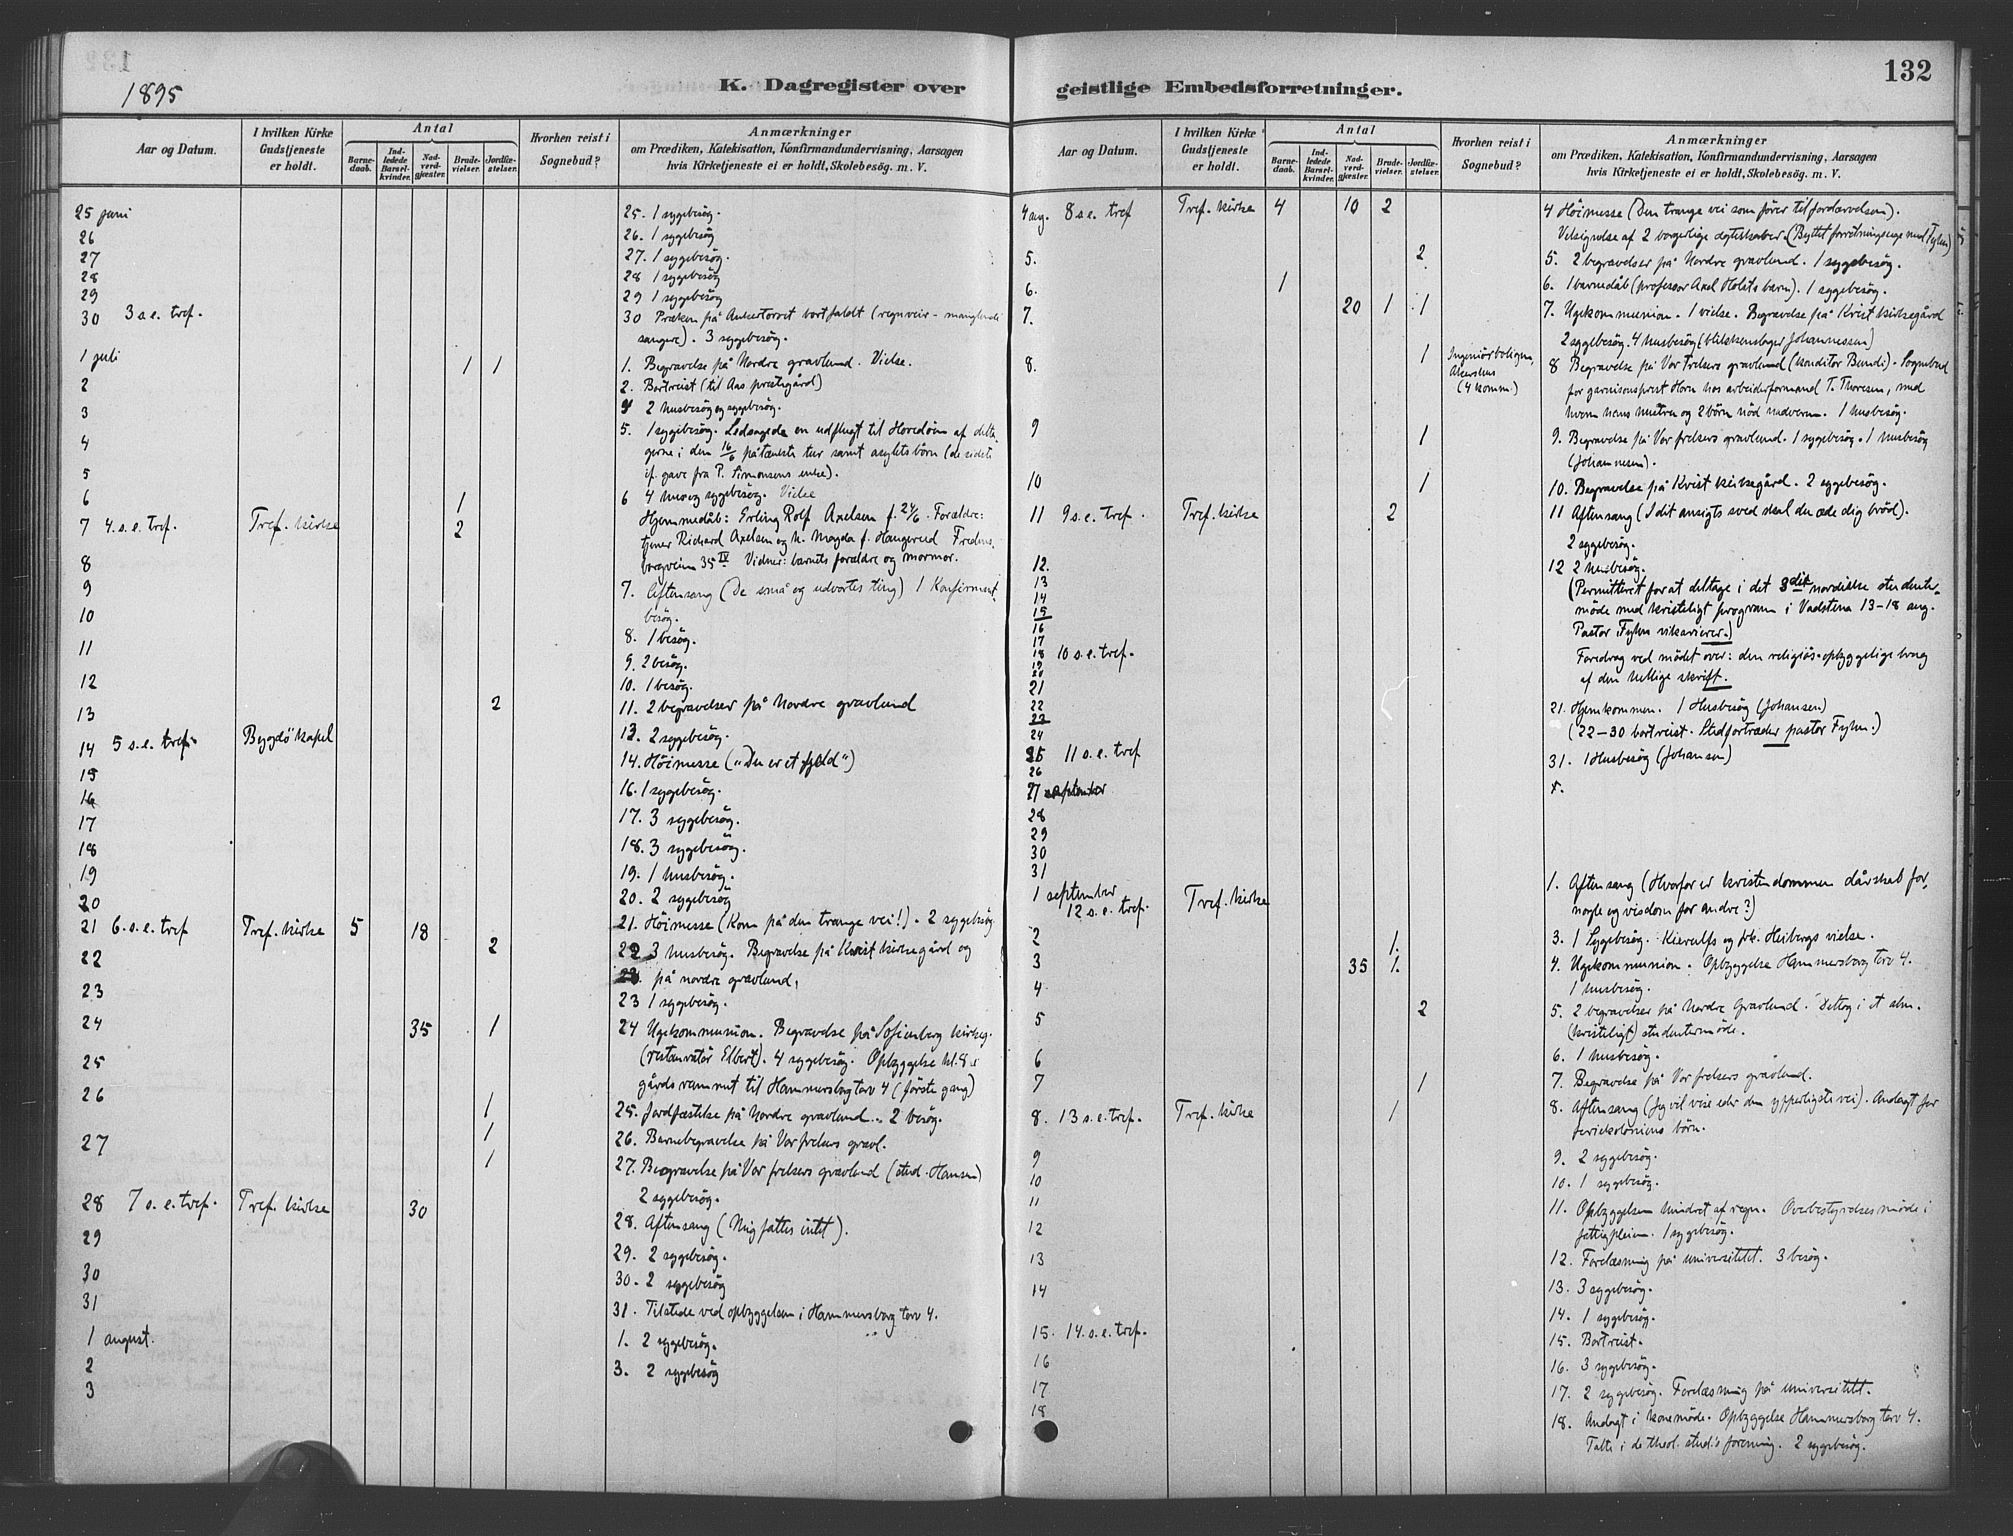 1895
132
K. Dagregister over
geistlige Embedsforretninger.
Aar og Datum.
I hvilken Kirke Gudstjeneste er holdt.
Antal
Barnedaab.
Indledede Barselkvinder.
Nadverdgjæster.
Brudevielser.
Jordfæstelser.
Hvorhen reist i Sognebud?
Anmærkninger
om Prædiken, Katekisation, Konfirmandundervisning, Aarsagen
hvis Kirketjeneste ei er holdt, Skolebesög. m. V.
25 juni 25. 1 sygebesøg.
26 26. 1 sygebesøg
27 27. 1 sygebesøg.
28 28 1 sygebesøg
29 29 1 sygebesøg
30 3 s. e. tref. 30 Præken på Ankertorvet bortfaldt (regnveir - manglende
sangere). 3 sygebesøg.
1 juli 1 1 1. Begravelse på Nordre gravlund. Vielse.
2 2. Bortreist (til Aas prestegård)
3 4 2 husbesøg og sygebesøg.
4 5. 1 sygebesøg. Ledsagede en udflugt til Hovedøen af delta-
gerne i den 16/6 påtænkte tur samt asylets børn (de sidste
5 gave fra P. Simonsens enke).
6 1 6 4 hus og sygebesøg. Vielse
7 4. s. e. tref. Tref. kirke 2 Hjemmedåb: Erling Rolf Axelsen f. 24/6. Forældre:
tjener Richard Axelsen og h. Magda f. Haugerud Fredens-
8 borgveien 35 IV. Vidner: barnets forældre og mormor.
9 7. Aftensang (De små og udvortes ting) 1 Konfirmant-
10 besøg.
8. 1 besøg.
11 9. 2 besøg.
12 10. 1 besøg.
13 2 11. 2 begravelser på Nordre gravlund
14 5 s. e. tref. Bygdö kapel 13. 2 sygebesøg.
15 14. Höimesse („Du er et fjeld")
16 16. 1 sygebesøg.
17 17. 3 sygebesøg.
18 18. 3 sygebesøg.
19 19. 1 husbesøg.
20 20. 2 sygebesøg
21 6. s. e. tref Tref. kirke 5 18 21. Höimesse (Kom på den trange vei!). 2 sygebesøg.
22 2 22 3 husbesøg. Begravelse på Krist kirkegård og
på nordre gravlund.
23 23 1 sygebesøg.
24 35 1 24 Ugekommunion. Begravelse på Sofienberg kirkeg.
(restauratør Elbert). 4 sygebesøg. Opbyggelse kl. 8 i
25 gårdsrummet til Hammersborg torv 4 (første gang)
26 1 25. Jordfæstelse på Nordre gravlund. 2 besøg.
1 26. Barnebegravelse på Vor frelsers gravl.
27 1 27. Begravelse på Vor frelsers gravlund (stud. Hansen)
2 sygebesøg.
28 7 s. e. tref. Tref. kirke 30 28. Aftensang (Mig fattes intet).
29 29. 2 sygebesøg.
30 30. 2 sygebesøg
31 31. Tilstede ved opbyggelsen i Hammersborg torv 4.
1 august. 1. 2 sygebesøg.
2 3. 2 sygebesøg
3
Aar og Datum.
I hvilken Kirke Gudstjeneste er holdt.
Antal
Barnedaab.
Indledede Barselkvinder.
Nadverdgjæster.
Brudevielser.
Jordfæstelser.
Hvorhen reist i Sognebud?
Anmærkninger
om Prædiken, Katekisation, Konfirmandundervisning, Aarsagen
hvis Kirketjeneste ei er holdt, Skolebesög. m. V.
4 aug. 8 s. e. tref Tref. kirke 4 10 2 4 Höimesse (Den trange vei som fører til fordærvelsen).
Velsignelse af 2 borgerlige ægteskaber. (Byttet forretningsuge med Fyhn)
5. 2 5. 2 begravelser på Nordre gravlund. 1 sygebesøg.
6. 1 6. 1 barnedåb (professor Axel Holsts barn). 1 sygebesøg.
7. 20 1 1 7. Ugekommunion. 1 vielse. Begravelse på Krist kirkegård
2 sygebesøg. 4 husbesøg (blikkenslager Johannessen)
8. 1 Ingeniørboligen, Akershus (4 komm.) 8 Begravelse på Vor Frelsers gravlund (konditor Bundi). Sognebud
for garnisonsprest Horn hos arbeiderformand T. Thoresen, med
hvem hans hustru og 2 børn nød nadveren. 1 husbesøg.
9 1 9. Begravelse på Vor frelsers gravlund. 1 sygebesøg. 1 husbesøg
(Johannesen).
10 1 10. Begravelse på Krist kirkegård. 2 sygebesøg.
11 9 s. e. tref. Tref. kirke 2 11 Aftensang (I dit ansigts sved skal du æde dig brød).
2 sygebesøg.
12. 12 2 husbesøg.
13 (Permitteret for at deltage i det 3die nordiske studenter-
14 møde med kristeligt program i Vadstena 13-18 aug.
15
16 Pastor Fyhn vikarierer.)
17
18 10 s. e. tref. Foredrag ved mødet over: den religiøs-opbyggelige brug
19
20 af den hellige skrift.
21 21. Hjemkommen. 1 Husbesøg (Johansen)
22
23 (22-30 bortreist. Stedfortræder pastor Fyhn.)
24
25 11 s. e. tref 31. 1 Husbesøg (Johansen)
26
27
28
29
30
31
1 september 12 s. e. tref. Tref. kirke 1. Aftensang (Hvorfor er kristendommen dårskab for
nogle og visdom for andre?)
2 1. 3. 1 Sygebesøg. Kierulfs og frk. Heibergs vielse.
3 35 1. 4. Ugekommunion. Opbyggelse Hammersborg torv 4.
4 1 husbesøg.
5 2 5. 2 begravelser på Nordre Gravlund. Deltog i et alm.
(kristeligt) studentermøde.
6 6. 1 husbesøg.
7 1 7. Begravelse på Vor frelsers gravlund.
8. 13 s. e. tref. Tref. kirke 1 8. Aftensang (Jeg vil vise eder den ypperligste vei). Andagt for
feriekoloniens børn.
9 9. 2 sygebesøg.
10 10. 1 sygebesøg.
11 11. Opbyggelsen hindret af regn. Overbestyrelsesmøde i
12 fattigpleien. 1 sygebesøg.
13 12. Forelæsning på universitetet. 3 besøg.
14 13. 3 sygebesøg.
14. 1 sygebesøg.
15. 14. s. e. tref. 15. Bortreist.
16 16. 3 sygebesøg.
17 17. 2 sygebesøg. Forelæsning på universitetet.
18 18. Andagt i konemøde. Opbyggelse Hammersborg torv 4.
Talte i de theol. stud's forening. 2 sygebesøg.